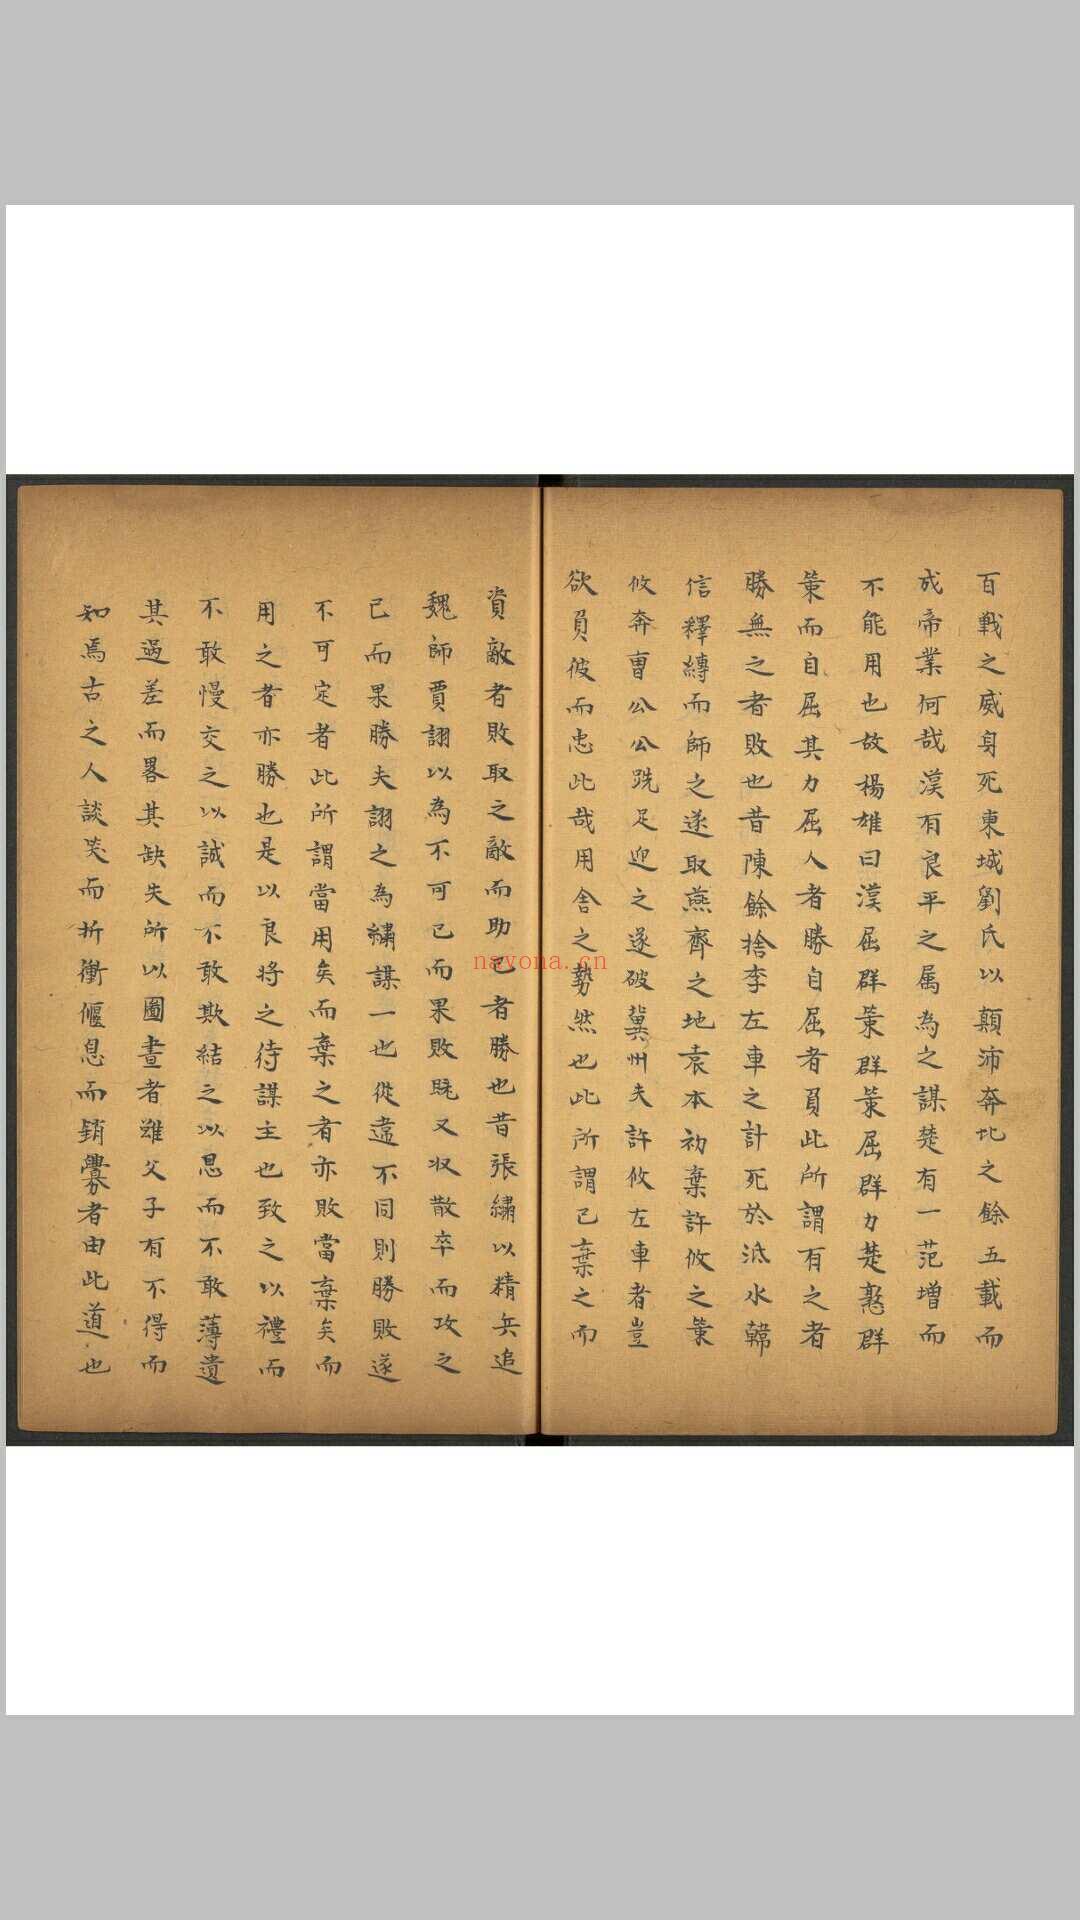 百戰之威身死東城劉氏以顛沛奔北之餘五載而
成帝業何哉漢有良平之属為之謀楚有一范增而
不能用也故楊雄曰漢屈群策群策屈群力楚憝群
策而自屈其力屈人者勝自屈者負此所謂有之者
勝無之者敗也昔陳餘捨李左車之計死於泜水韓
信釋縛而師之遂取燕齊之地袁本初棄許攸之策
攸奔曹公公跣足迎之遂破冀州夫許攸左車者豈
欲負彼而忠此哉用舍之勢然也此所謂己棄之而
資敵者敗取之敵而助己者勝也昔張繡以精兵追
魏師賈詡以為不可已而果敗既又收散卒而攻之
已而果勝夫詡之為繡謀一也從違不同則勝敗遂
不可定者此所謂當用矣而棄之者亦敗當棄矣而
用之者亦勝也是以良將之待謀主也致之以禮而
不敢慢交之以誠而不敢欺結之以恩而不敢薄遺
其過差而畧其缺失所以圖畫者雖父子有不得而
知焉古之人談笑而折衝偃息而銷釁者由此道也
nayona.cn